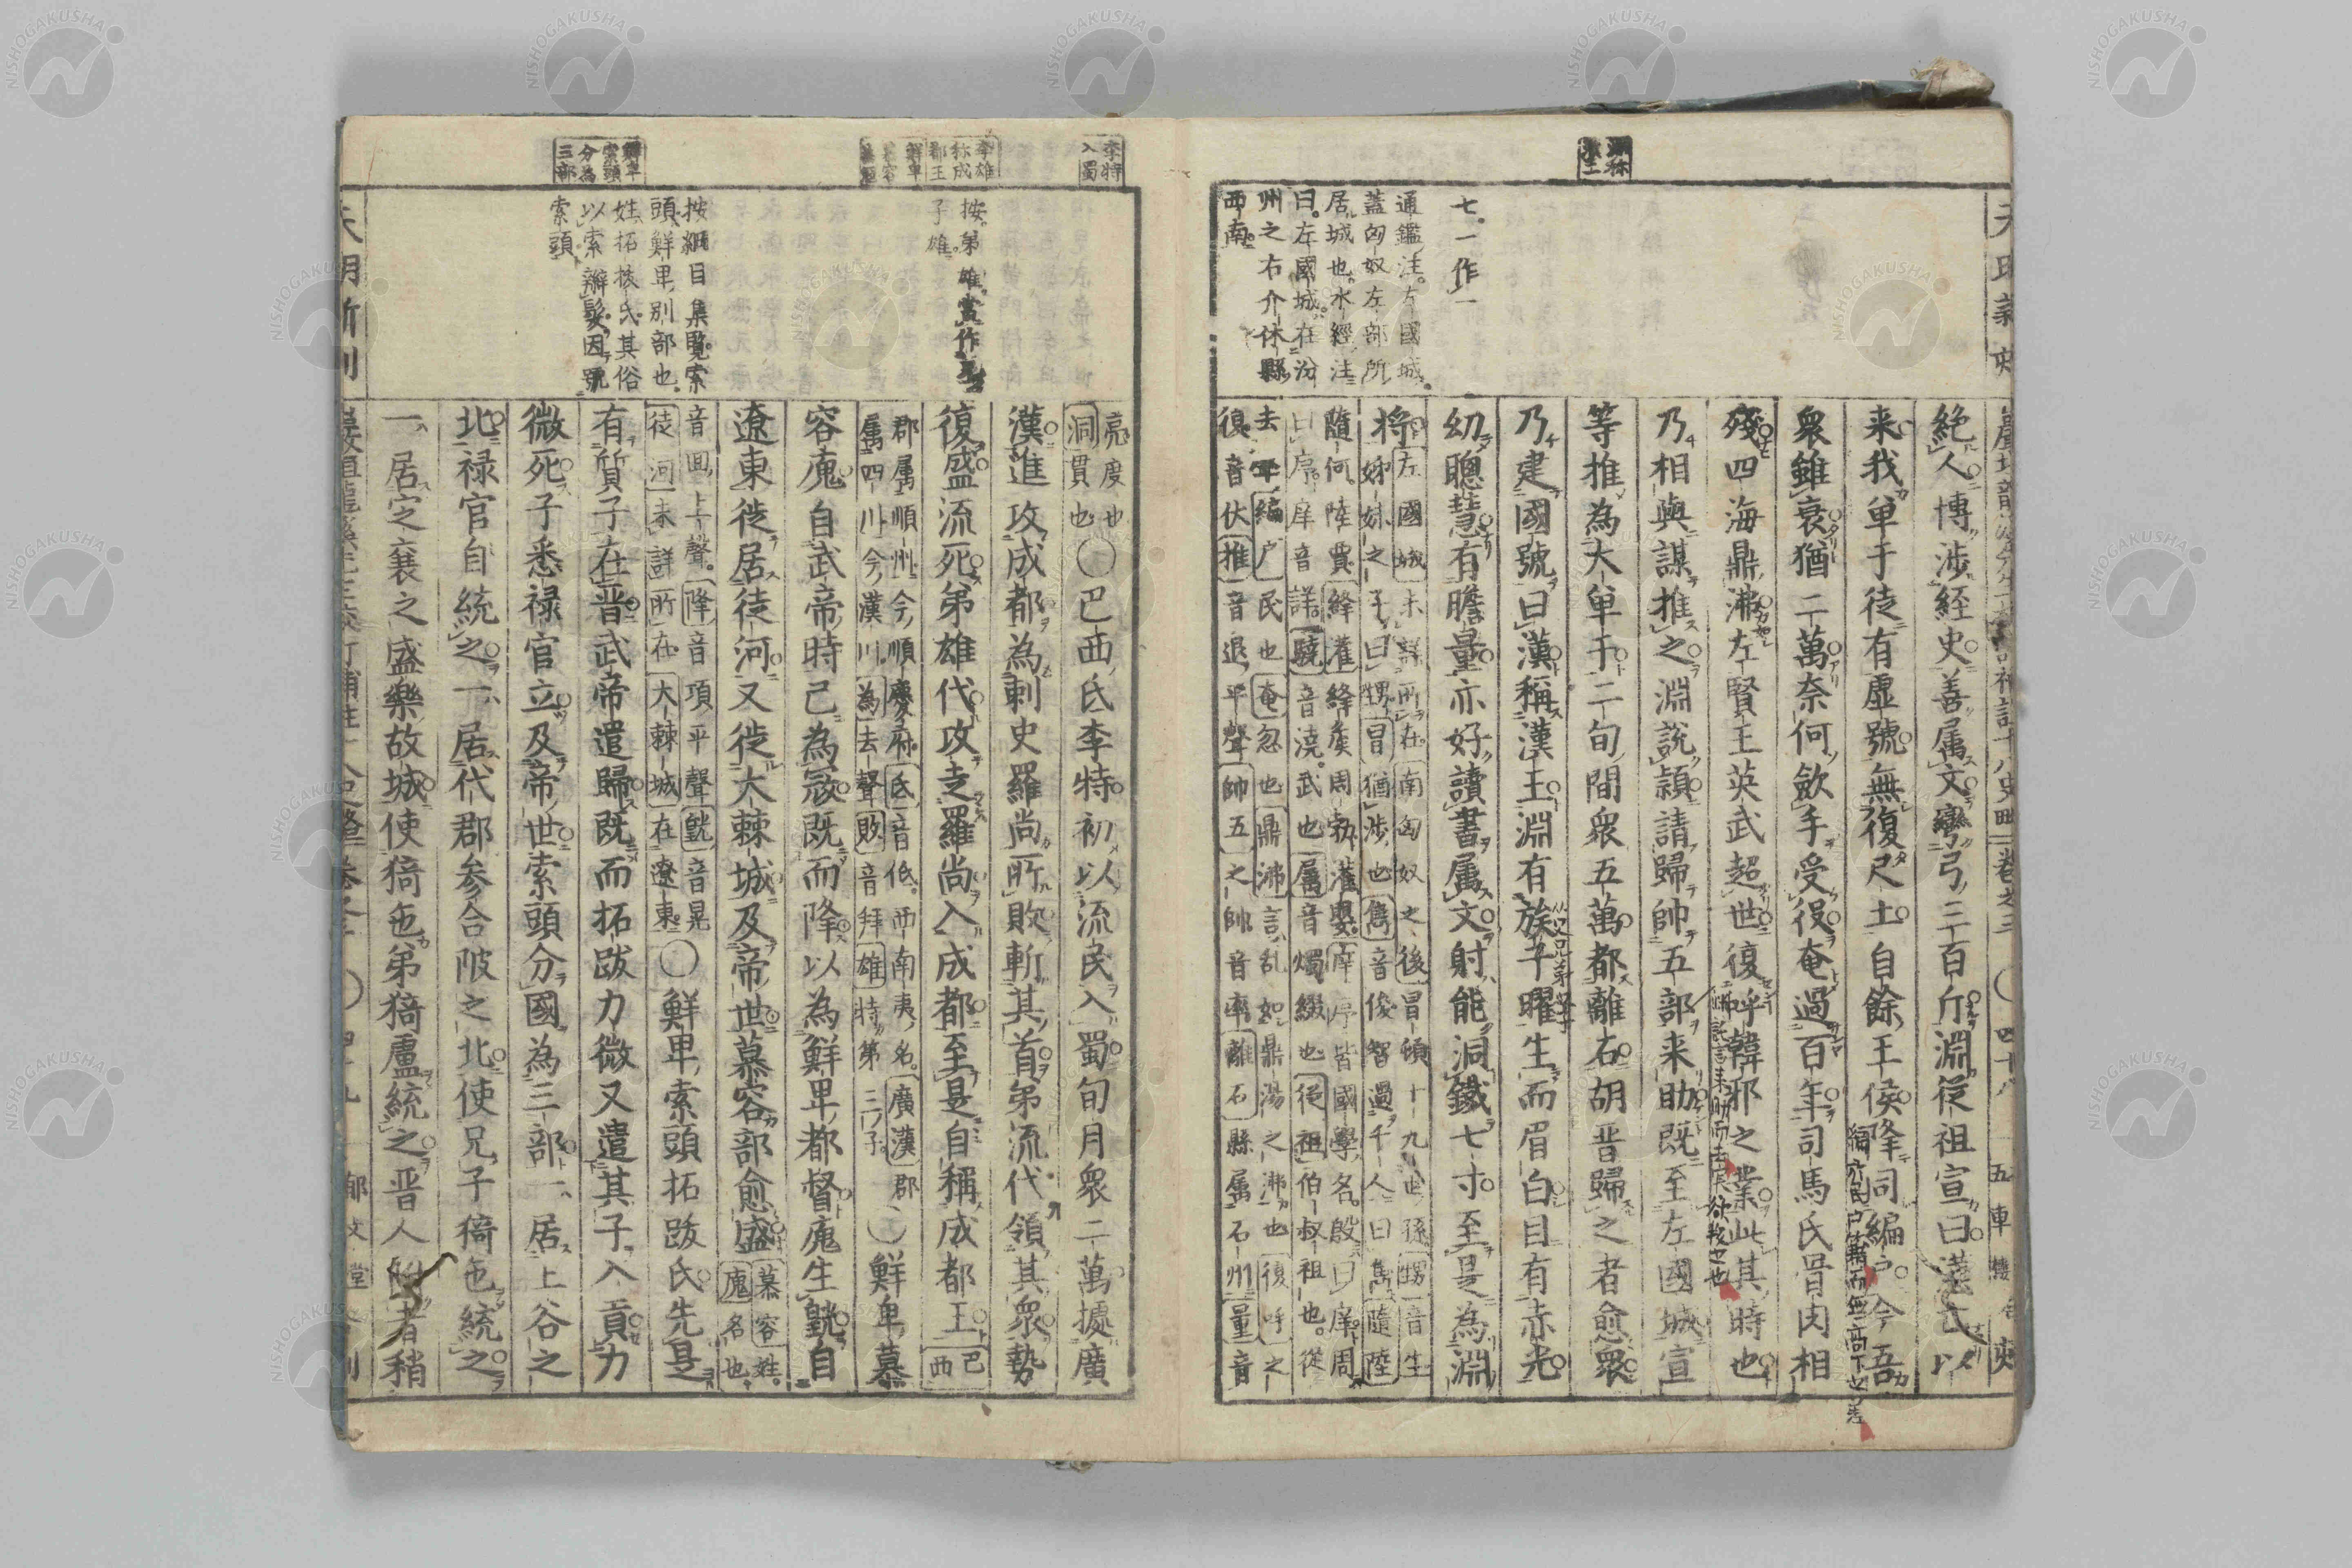 絶人博渉経史善属文彎弓三百斤淵従祖宣曰漢亡以
来我単于徒有虚號無復尺土自餘王侯降同編戸今吾
衆雖衰猶二萬奈何歛手受役奄過百年司馬氏骨肉相
殘四海鼎沸左賢王英武超世復呼韓邪之業此其時也
乃相與謀推之淵説頴請歸帥五部来助既至左國城宣
等推為大単于二旬間衆五萬都離石胡晋歸之者愈衆
乃建國號曰漢稱漢王淵有族子曜生而眉白目有赤光
幼聰慧有膽量亦好讀書属文射能洞鐵七寸至是為淵
将
左國城未詳所在南匈奴之後冒頓十九世孫甥音生
姉妹之子曰甥冒猶渉也雋音俊智過千人曰雋隨陸
隨何陸賈絳灌絳侯周勃灌嬰庠序皆國學名殷曰庠周
曰序庠音詳驍音澆武也属音燭綴也従祖伯叔祖也従
去声編戸民也奄忽也鼎沸言乱如鼎湯之沸也復呼之
復音伏推音退平聲帥五之帥音率離石縣属石州量音
七一作一
通鑑注左國城
蓋匈奴左部所
居城也水經注
曰左國城在汾
州之右介休縣
西南
五車樓
亮度也
洞貫也
〇巴西氐李特初以流民入蜀旬月衆二萬據廣
漢進攻成都為刺史羅尚所敗斬其首弟流代領其衆勢
復盛流死弟雄代攻走羅尚入成都至是自稱成都王
巴西
郡属順州今順慶府氐音低西南夷名廣漢郡
属四川今漢川為去聲敗音拜雄特第三子
〇鮮卑慕
容廆自武帝時已為寇既而降以為鮮卑都督廆生皝自
遼東徙居徒河又徙大棘城及帝世慕容部愈盛
慕容姓
廆名也
音回上聲降音項平聲皝音晃
徒河未詳所在大棘城在遼東
〇鮮卑索頭拓跋氏先是
有質子在晋武帝遣歸既而拓跋力微又遣其子入貢力
微死子悉禄官立及帝世索頭分國為三部一居上谷之
北禄官自統之一居代郡参合陂之北使兄子猗㐌統之
一居定襄之盛樂故城使猗㐌弟猗盧統之晋人附者稍
李特
入蜀
李雄
称成
都王
鮮卑
索頭
分為
三部
按第雄
子雄
按綱目集覧索
頭鮮卑別部也
姓拓抜氏其俗
以索辮髪因號
索頭
NISHOGAKUSHA